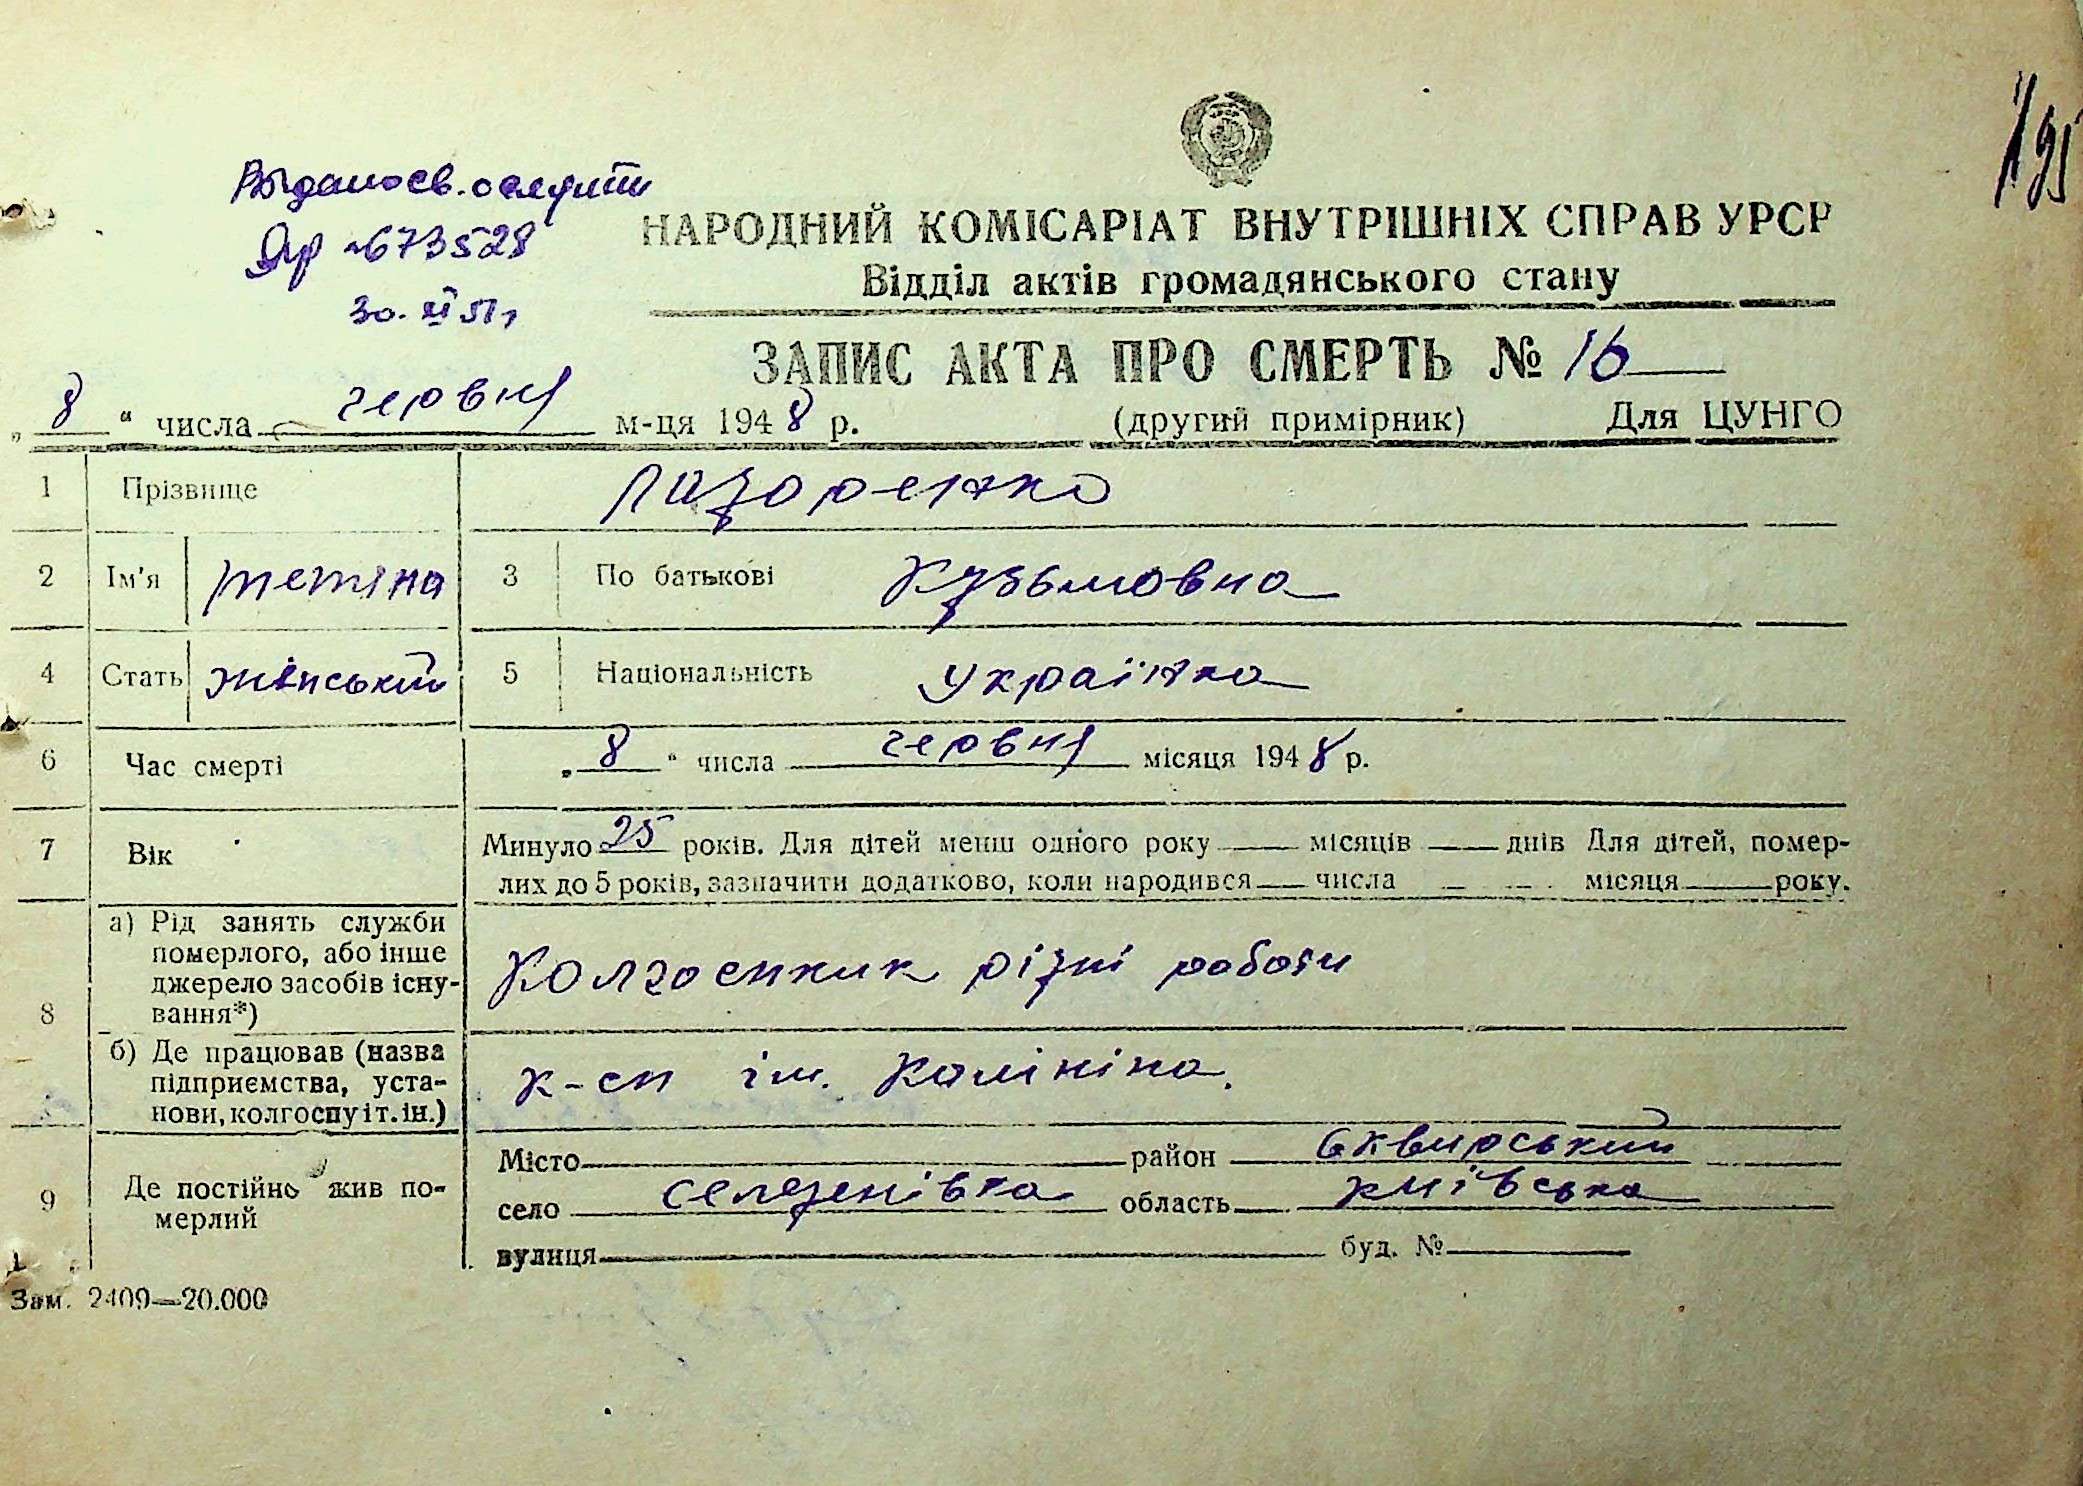 195
Выдано св. о смерти
ЯР №673528
30. XI 51 г
НАРОДНИЙ КОМІСАРІАТ ВНУТРІШНІХ СПРАВ УРСР
Відділ актів громадянського стану
ЗАПИС АКТА ПРО СМЕРТЬ № 16
„ 8 “ числа червня м-ця 1948 р. (другий примірник) Для ЦУНГО
1 Прізвище Лазоренко
2 Ім'я Тетяна 3 По батькові Кузьмовна
4 Стать жінський 5 Національність Українка
6 Час смерті „ 8 “ числа червня місяця 1948 р.
7 Вік Минуло 25 років. Для дітей менш одного року місяців днів Для дітей, помер-
лих до 5 років, зазначити додатково, коли народився числа місяця року.
8 а) Рід занять служби
померлого, або інше
джерело засобів існу-
вання*)
Колгоспник різні роботи
б) Де працював (назва
підприємства, уста-
нови, колгоспу і т. ін.)
к-сп ім. Калініна.
9 Де постійно жив по-
мерлий
Місто район Сквирський
село Селезенівка область Київська
вулиця буд. №
Зам. 2409—20.000